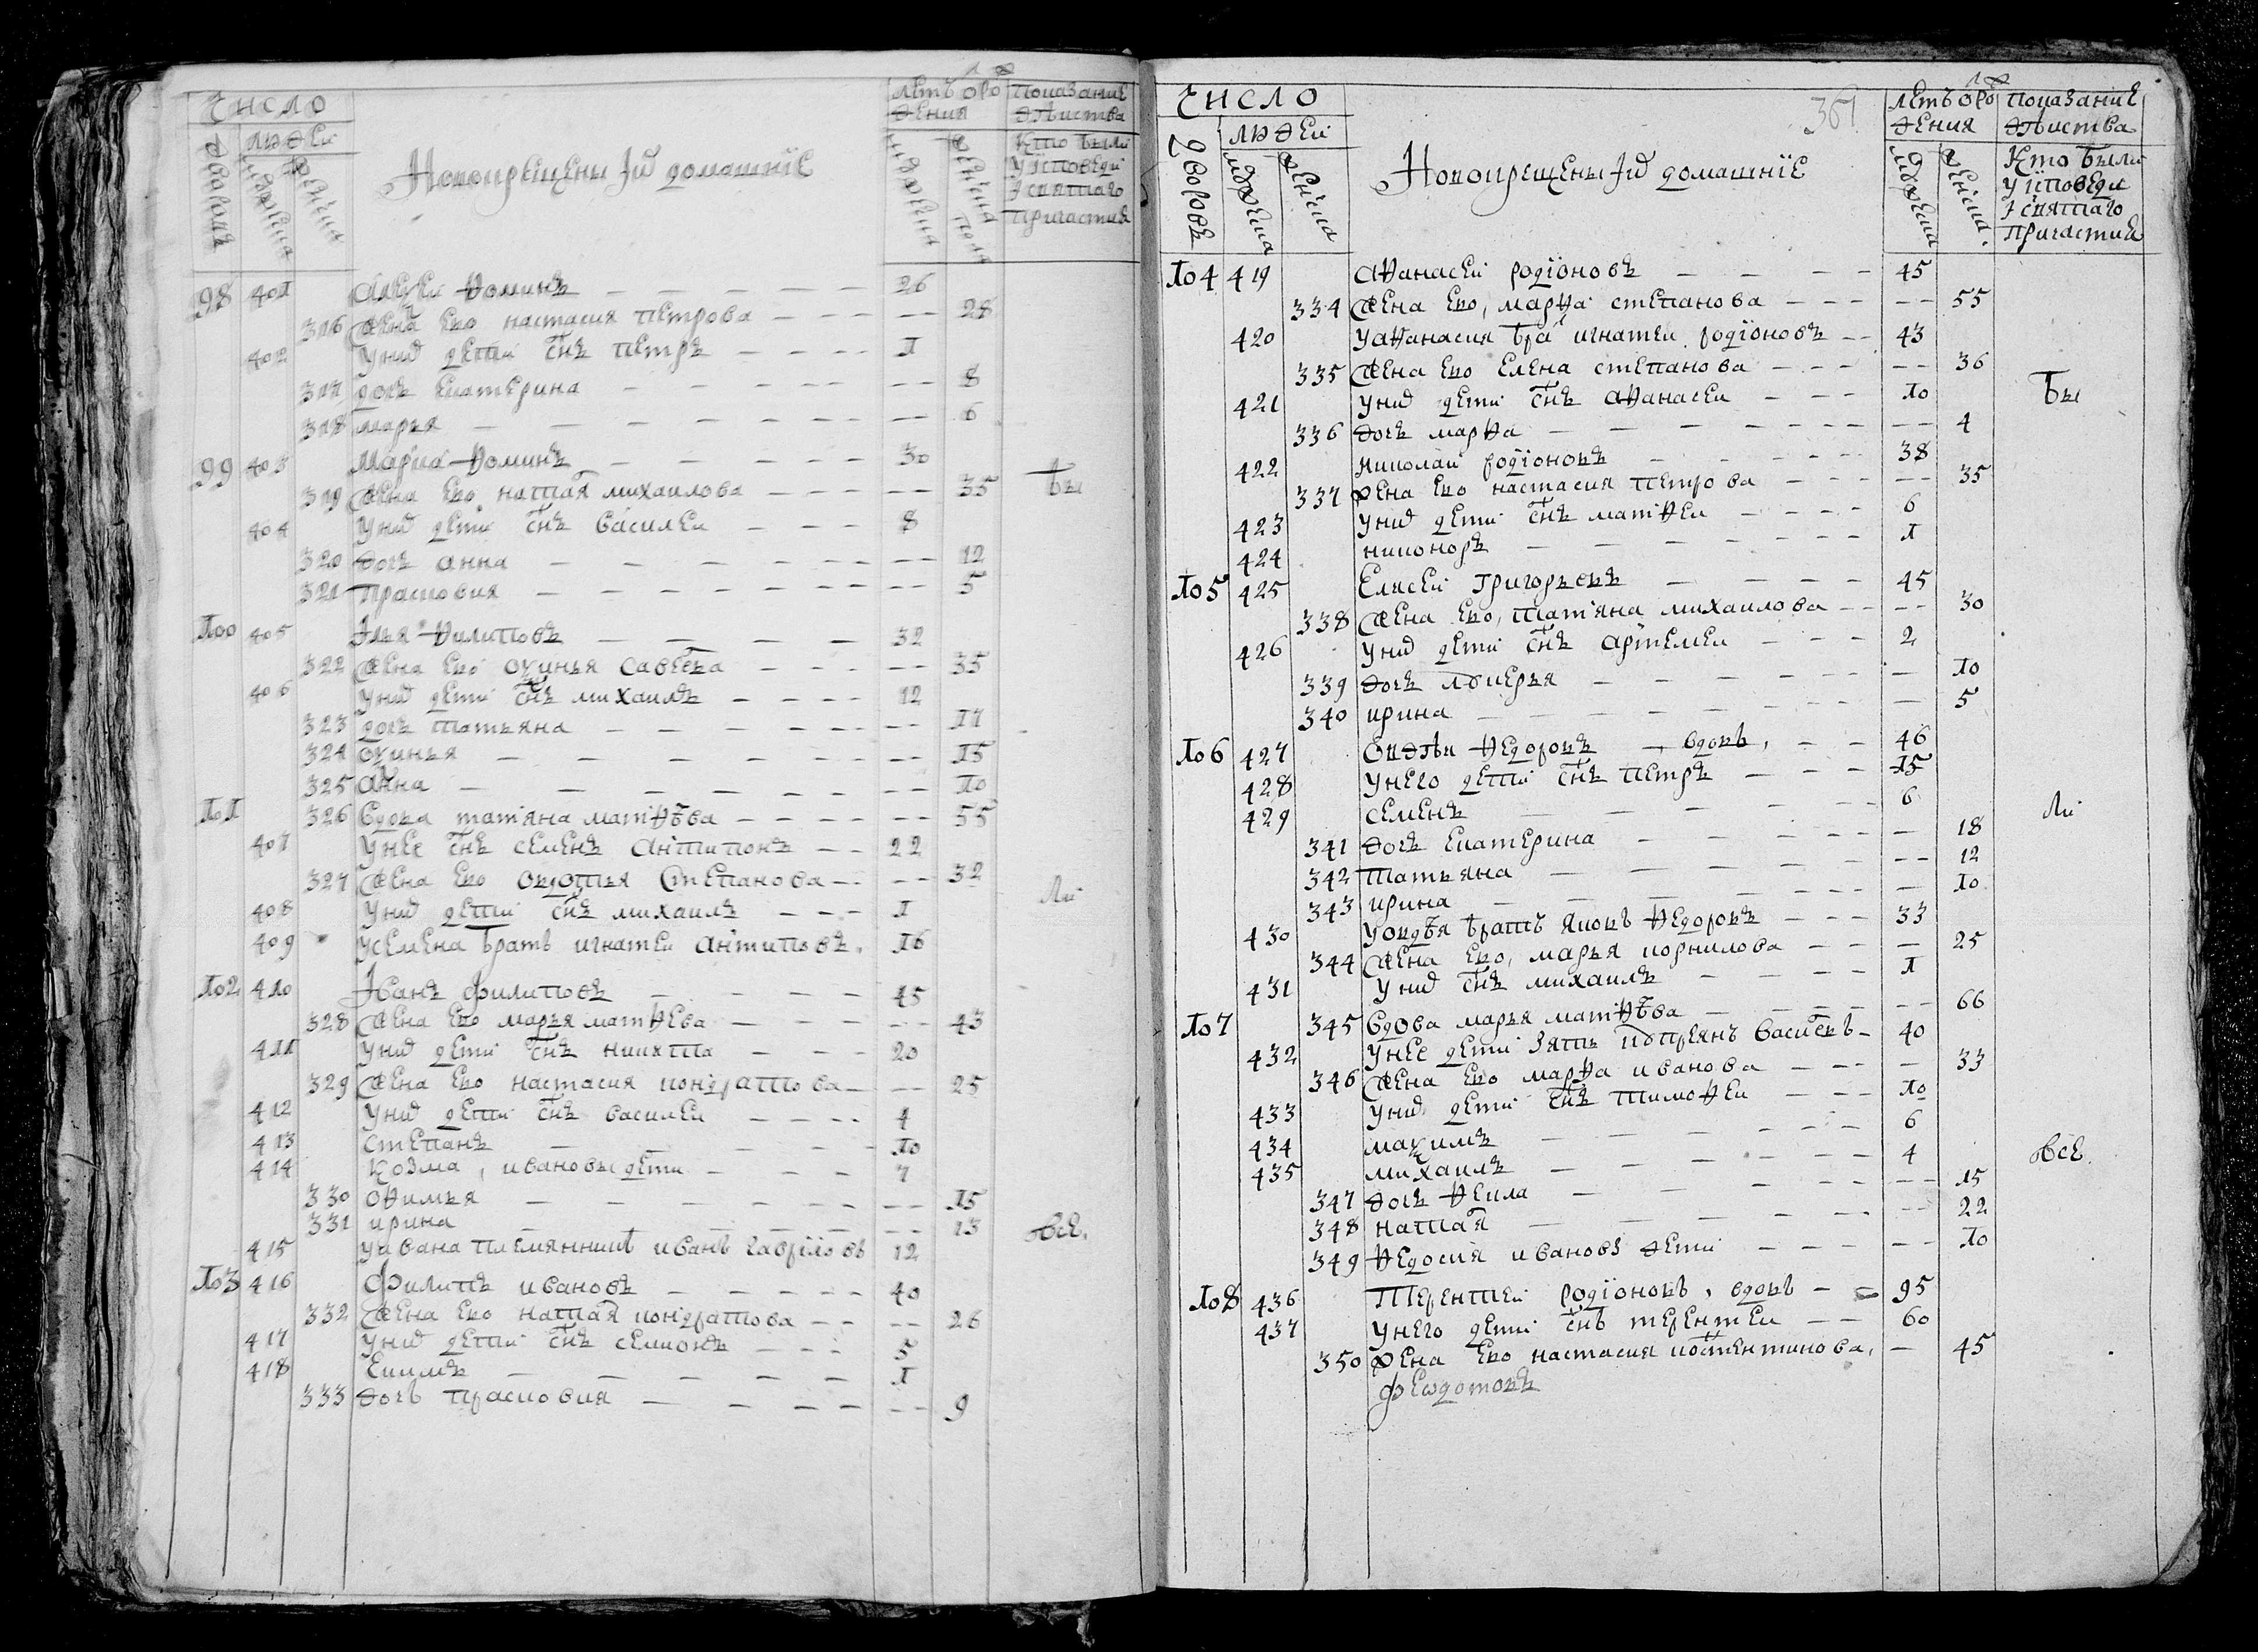 Число
людей
дворовъ
мужеска
женска
Новокрещены Ій домашнїе
летъ ѿ рождения
мужеска
женска пола
показание действа
Кто были
у исповеди
I святаго
причастия
98 401 Алеѯеи Ѳоминъ — 26
316 жена ево настасия петрова — 28
402 у них дети снъ петръ — 1
317 дочь екатерина — 8
318 марья — 6
99 403 Ѳоминъ — 30
319 жена ево наталя михаилова — 35 Бы
404 у них дети снъ василеи — 8
320 дочь анна — 12
321 прасковия — 5
100 405 Илья Ѳилиповъ — 32
322 жена ево оѯинья савеева — 35
406 у них дети снъ михаилъ — 12
323 дочь татьяна — 17
324 оѯинья — 15
325 анна — 10
101 326 вдова татіяна матѳѣва — 55
407 у нее снъ семенъ антиповъ — 22
327 жена ево овдотья степанова — 32
ли
408 у них дети снъ михаилъ — 1
409 у семена братъ игнатеи антиповъ. 16
102 410 Іванъ филиповъ — 45
328 жена ево марья матѳева — 43
411 у них дети снъ никита — 20
329 жена ево настасия кондратова — 25
412 у них дети снъ василеи — 4
413 степанъ — 10
414 козма, ивановы дети — 7
330 оѳимья — 15
331 ирина — 13 все.
415 у ивана племянникъ иванъ гавриловъ 12
103 416 Филипъ ивановъ — 40
332 жена ево наталя кондратова — 26
417 у них дети снъ семионъ — 5
418 екимъ — 1
333 дочь прасковия — 9
Число
361
людей
дворовъ
мужеска
женска
Новокрещены Ій домашнїе
летъ ѿ рождения
мужеска
женска.
показание
действа
Кто были
у исповеди
I святаго
причастия
104 419 Аѳанасеи родїоновъ — 45
334 жена ево, марѳа степанова — 55
420 у аѳанасия брат игнатеи родїоновъ — 43
335 жена ево елена степанова — 36
421 у них дети снъ аѳанасеи — 10 Бы
336 дочь марѳа — 4
422 николаи родїоновъ — 38
337 жена ево настасия петрова — 35
423 у них дети снъ матѳеи — 6
424 никоноръ — 1
105 425 Елисеи григорьевъ — 45
338 жена ево, татіяна михаилова — 30
426 у них дети снъ артемеи — 2
339 дочь лукерья — 10
340 ирина — 5
106 427 Овдѣи ѳедоровъ, вдовъ, — 46
428 у него дети снъ петръ — 15
429 семенъ — 6 ли
341 дочь екатерина — 18
342 татьяна — 12
343 ирина — 10
430 у овдѣя братъ яковъ ѳедоровъ — 33
344 жена ево, марья корнилова — 25
431 у них снъ михаилъ — 1
107 345 вдова марья матѳѣва — 66
432 у нее дети зять купреянъ васиевъ — 40
346 жена ево марѳа иванова — 33
433 у них дети снъ тимоѳеи — 10
434 маѯимъ — 6
435 михаилъ — 4 все.
347 дочь ѳекла — 15
348 наталя — 22
349 ѳедосия ивановы дети — 10
108 436 Терентеи родїоновъ, вдовъ — 95
437 у него дети снъ терентеи — 60
350 жена ево настасия костентинова, — 45
феѡдотовъ